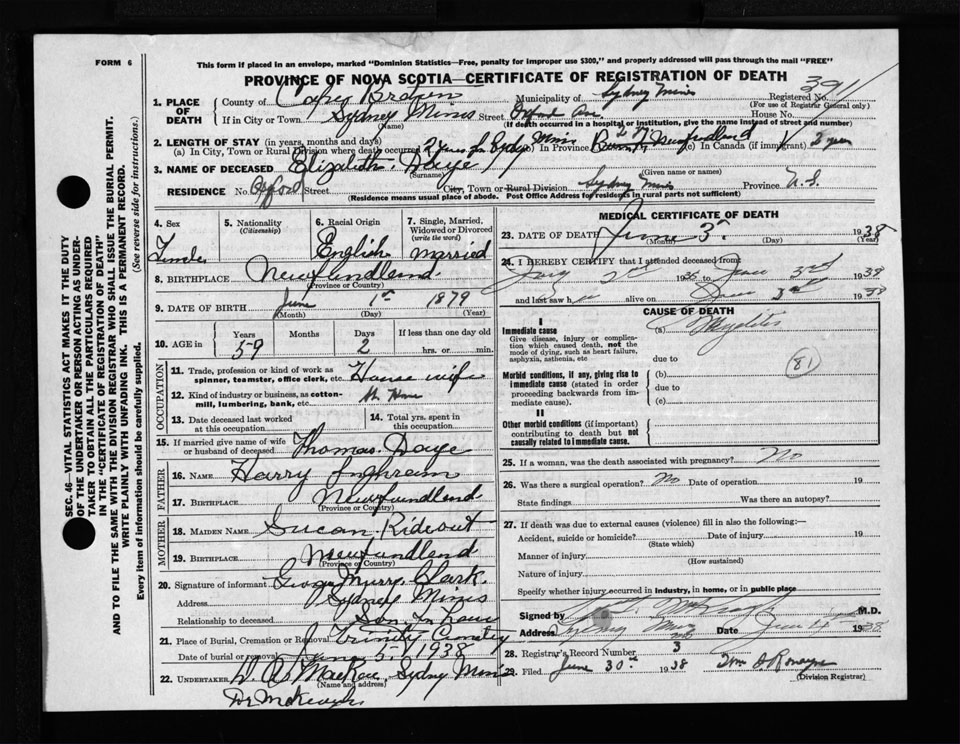 FORM 6
This form if placed in an envelope, marked "Dominion Statistics—Free, penalty for improper use $300," and properly addressed will pass through the mail "FREE"
PROVINCE OF NOVA SCOTIA—CERTIFICATE OF REGISTRATION OF DEATH
SEC. 46—VITAL STATISTICS ACT MAKES IT THE DUTY
OF THE UNDERTAKER OR PERSON ACTING AS UNDER-
TAKER TO OBTAIN ALL THE PARTICULARS REQUIRED
IN THE "CERTIFICATE OF REGISTRATION OF DEATH"
AND TO FILE THE SAME WITH THE DIVISION REGISTRAR WHO SHALL ISSUE THE BURIAL PERMIT.
WRITE PLAINLY WITH UNFADING INK. THIS IS A PERMANENT RECORD.
Every item of information should be carefully supplied. (See reverse side for instructions.)
1. PLACE OF DEATH
County of Cape Breton Municipality of Sydney Mines Registered No. 3911
(For use of Registrar General only)
If in City or Town Sydney Mines Street Oxford House No.
(Name) (If death occurred in a hospital or institution, give the name instead of street and number)
2. LENGTH OF STAY (in years, months and days)
(a) In City, Town or Rural Division where death occurred 2 years (b) In Province (c) In Canada (if immigrant)
3. NAME OF DECEASED Elizabeth Daye
(Surname) (Given name or names)
RESIDENCE No. Oxford Street City, Town or Rural Division Sydney Mines Province N.S.
(Residence means usual place of abode. Post Office Address for residents in rural parts not sufficient)
4. Sex Female
5. Nationality (Citizenship)
6. Racial Origin English
7. Single, Married, Widowed or Divorced (write the word) Married
8. BIRTHPLACE Newfundlend
(Province or Country)
9. DATE OF BIRTH June 1st 1879
(Month) (Day) (Year)
10. AGE in Years 59 Months Days 2 If less than one day old hrs. or min.
OCCUPATION
11. Trade, profession or kind of work as spinner, teamster, office clerk, etc. House wife
12. Kind of industry or business, as cotton-mill, lumbering, bank, etc. At Home
13. Date deceased last worked at this occupation
14. Total yrs. spent in this occupation
15. If married give name of wife or husband of deceased Thomas Daye
FATHER
16. NAME Harry Inghram
17. BIRTHPLACE Newfundlend
(Province or Country)
MOTHER
18. MAIDEN NAME Susan Rideout
19. BIRTHPLACE Newfundlend
(Province or Country)
20. Signature of informant George Murry Clark
Address Sydney Mines
Relationship to deceased Son In Law
21. Place of Burial, Cremation or Removal Trinity Cemetry
Date of burial or removal June 5 1938
22. UNDERTAKER MacRae, Sydney Mines
(Name and address)
MEDICAL CERTIFICATE OF DEATH
23. DATE OF DEATH June 3 1938
(Month) (Day) (Year)
24. I HEREBY CERTIFY that I attended deceased from
2nd 1936 to June 3rd 1938
and last saw her alive on June 3rd 1938
CAUSE OF DEATH
I
Immediate cause (a) Myelites
Give disease, injury or complication which caused death, not the mode of dying, such as heart failure, asphyxia, asthenia, etc
due to
81
Morbid conditions, if any, giving rise to immediate cause (stated in order proceeding backwards from immediate cause). (b)
due to
(c)
II
Other morbid conditions (if important) contributing to death but not causally related to immediate cause.
25. If a woman, was the death associated with pregnancy? No
26. Was there a surgical operation? No Date of operation 19
State findings Was there an autopsy?
27. If death was due to external causes (violence) fill in also the following:—
Accident, suicide or homicide? Date of injury 19
(State which)
Manner of injury
(How sustained)
Nature of injury
Specify whether injury occurred in industry, in home, or in public place
Signed by M.D.
Address Sydney Mines Date June 4th 1938
28. Registrar's Record Number 3
29. Filed June 30th 1938
(Division Registrar)